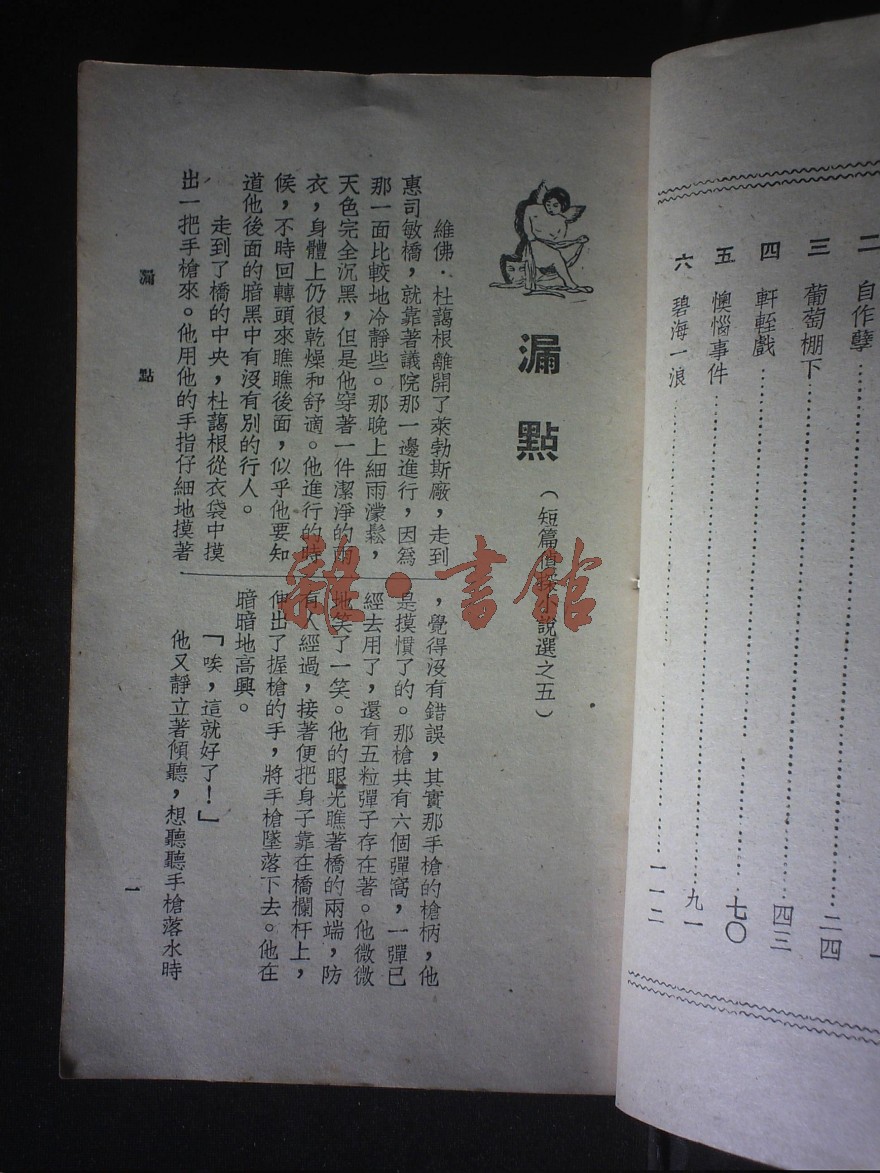 二 自作孽
三 葡萄棚下……二四
四 軒輊戲……四三
五 懊惱事件……七〇
六 碧海一浪……九一
一一二
漏點
(短篇偵探小說選之五)
維佛·杜藹根離開了萊勃斯廠,走到
惠司敏橋,就靠著議院那一邊進行,因為
那一面比較地冷靜些。那晚上細雨濛鬆,
天色完全沉黑,但是他穿著一件潔淨的雨
衣,身體上仍很乾燥和舒適。他進行的時
候,不時回轉頭來瞧瞧後面,似乎他要知
道他後面的暗黑中有沒有別的行人。
走到了橋的中央,杜藹根從衣袋中摸
出一把手槍來。他用他的手指仔細地摸著
,覺得沒有錯誤,其實那手槍的槍柄,他
是摸慣了的。那槍共有六個彈窩,一彈已
經去用了,還有五粒彈子存在著。他微微
地笑了一笑。他的眼光瞧著橋的兩端,防
有人經過,接著便把身子靠在橋欄杆上,
伸出了握槍的手,將手槍墜落下去。他在
暗暗地高興。
「唉,這就好了!」
他又靜立著傾聽,想聽聽手槍落水時
漏點
一
雜·書館